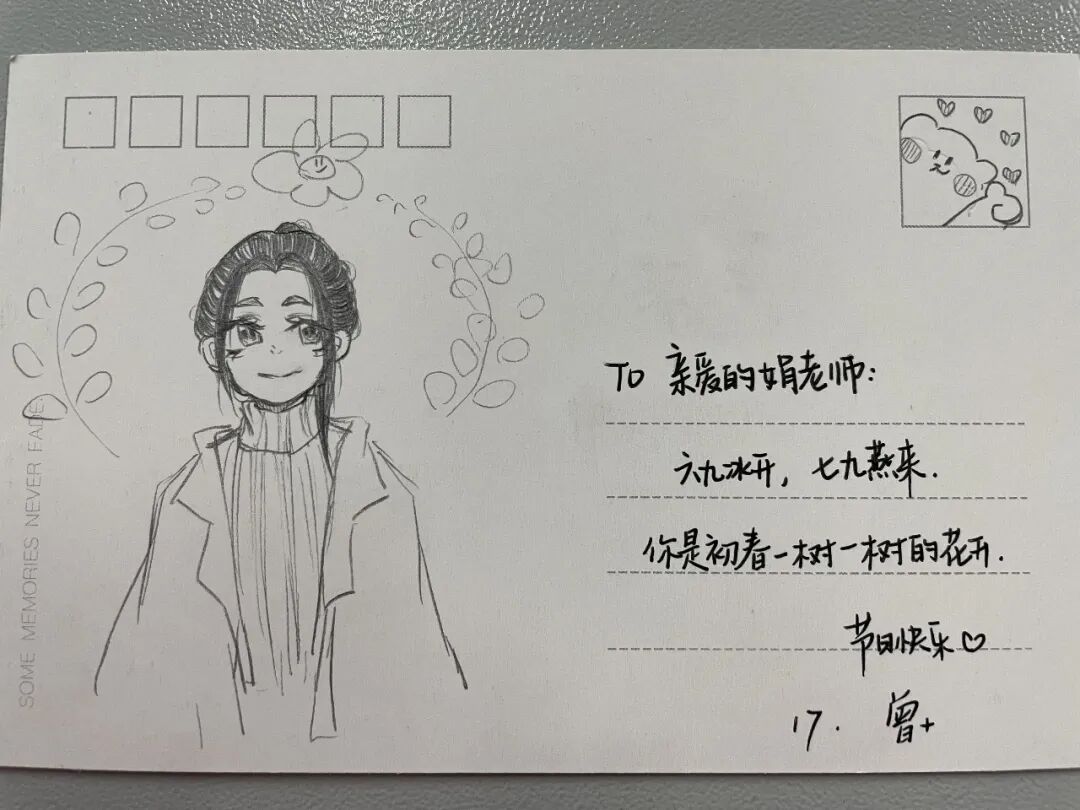 TO 亲爱的娟老师:
六九冰开, 七九燕来.
你是初春一树一树的花开.
节日快乐♡
17. 曾+
SOME MEMORIES NEVER FADE